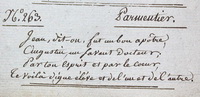 No. 263. Parmentier.
Jean, dit-on, fut un bon apôtre
Augustin un savant Docteur,
Par ton esprit et par le cœur,
Te voilà digne élève et de l'un et de l'autre.